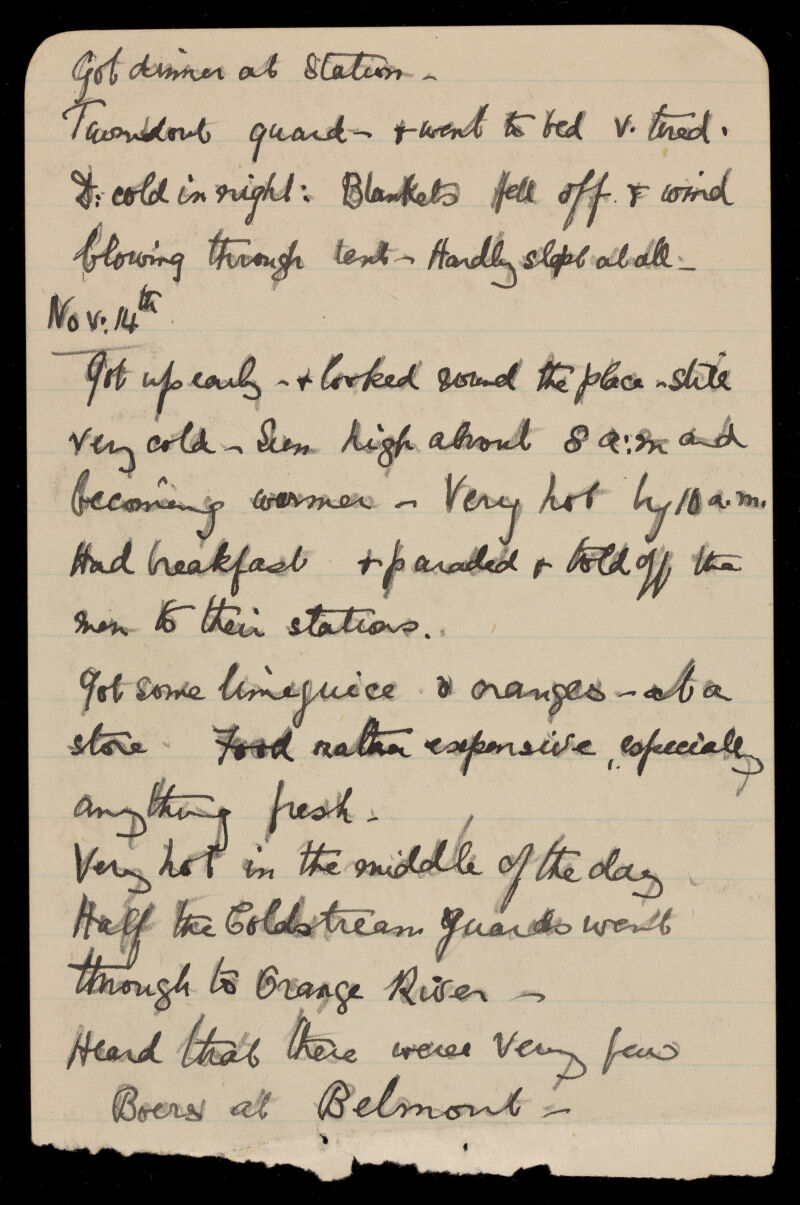 Got dinner at Station -
Turned out guard - & went to bed v. tired.
D: cold in night: Blankets fell off & wind
blowing through tent - Hardly slept at all -
Nov: 14th
Got up early - & looked round the place - still
very cold - Sun high about 8 a:m and
becoming warmer - Very hot by 10 a.m.
Had breakfast & paraded & told off the
men to their stations.
Got some limejuice & oranges - at a
store Food rather expensive, especially
anything fresh -
Very hot in the middle of the day
Half the Coldstream Guards went
through to Orange River -
Heard that there were very few
Boers at Belmont -